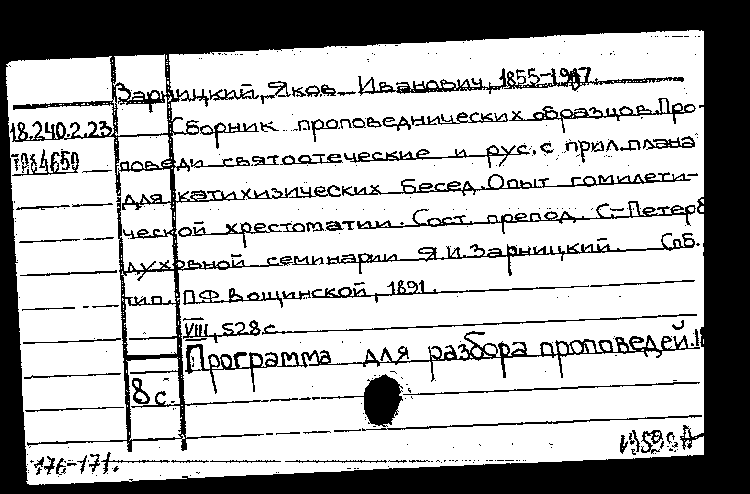 Зарницкий, Яков Иванович, 1855-1917.
18.240.2.23 Сборник проповеднических образцов. Про-
поведи святоотеческие и рус. с прил. плана
для катихизических бесед. Опыт гомилети-
ческой хрестоматии. Сост. препод. С.-Петерб
духовной семинарии Я.И. Зарницкий. Спб.,
тип. П.Ф. Вощинской, 1891.
VIII, 528 с.
Программа для разбора проповедей. 18
8 с.
176-171.